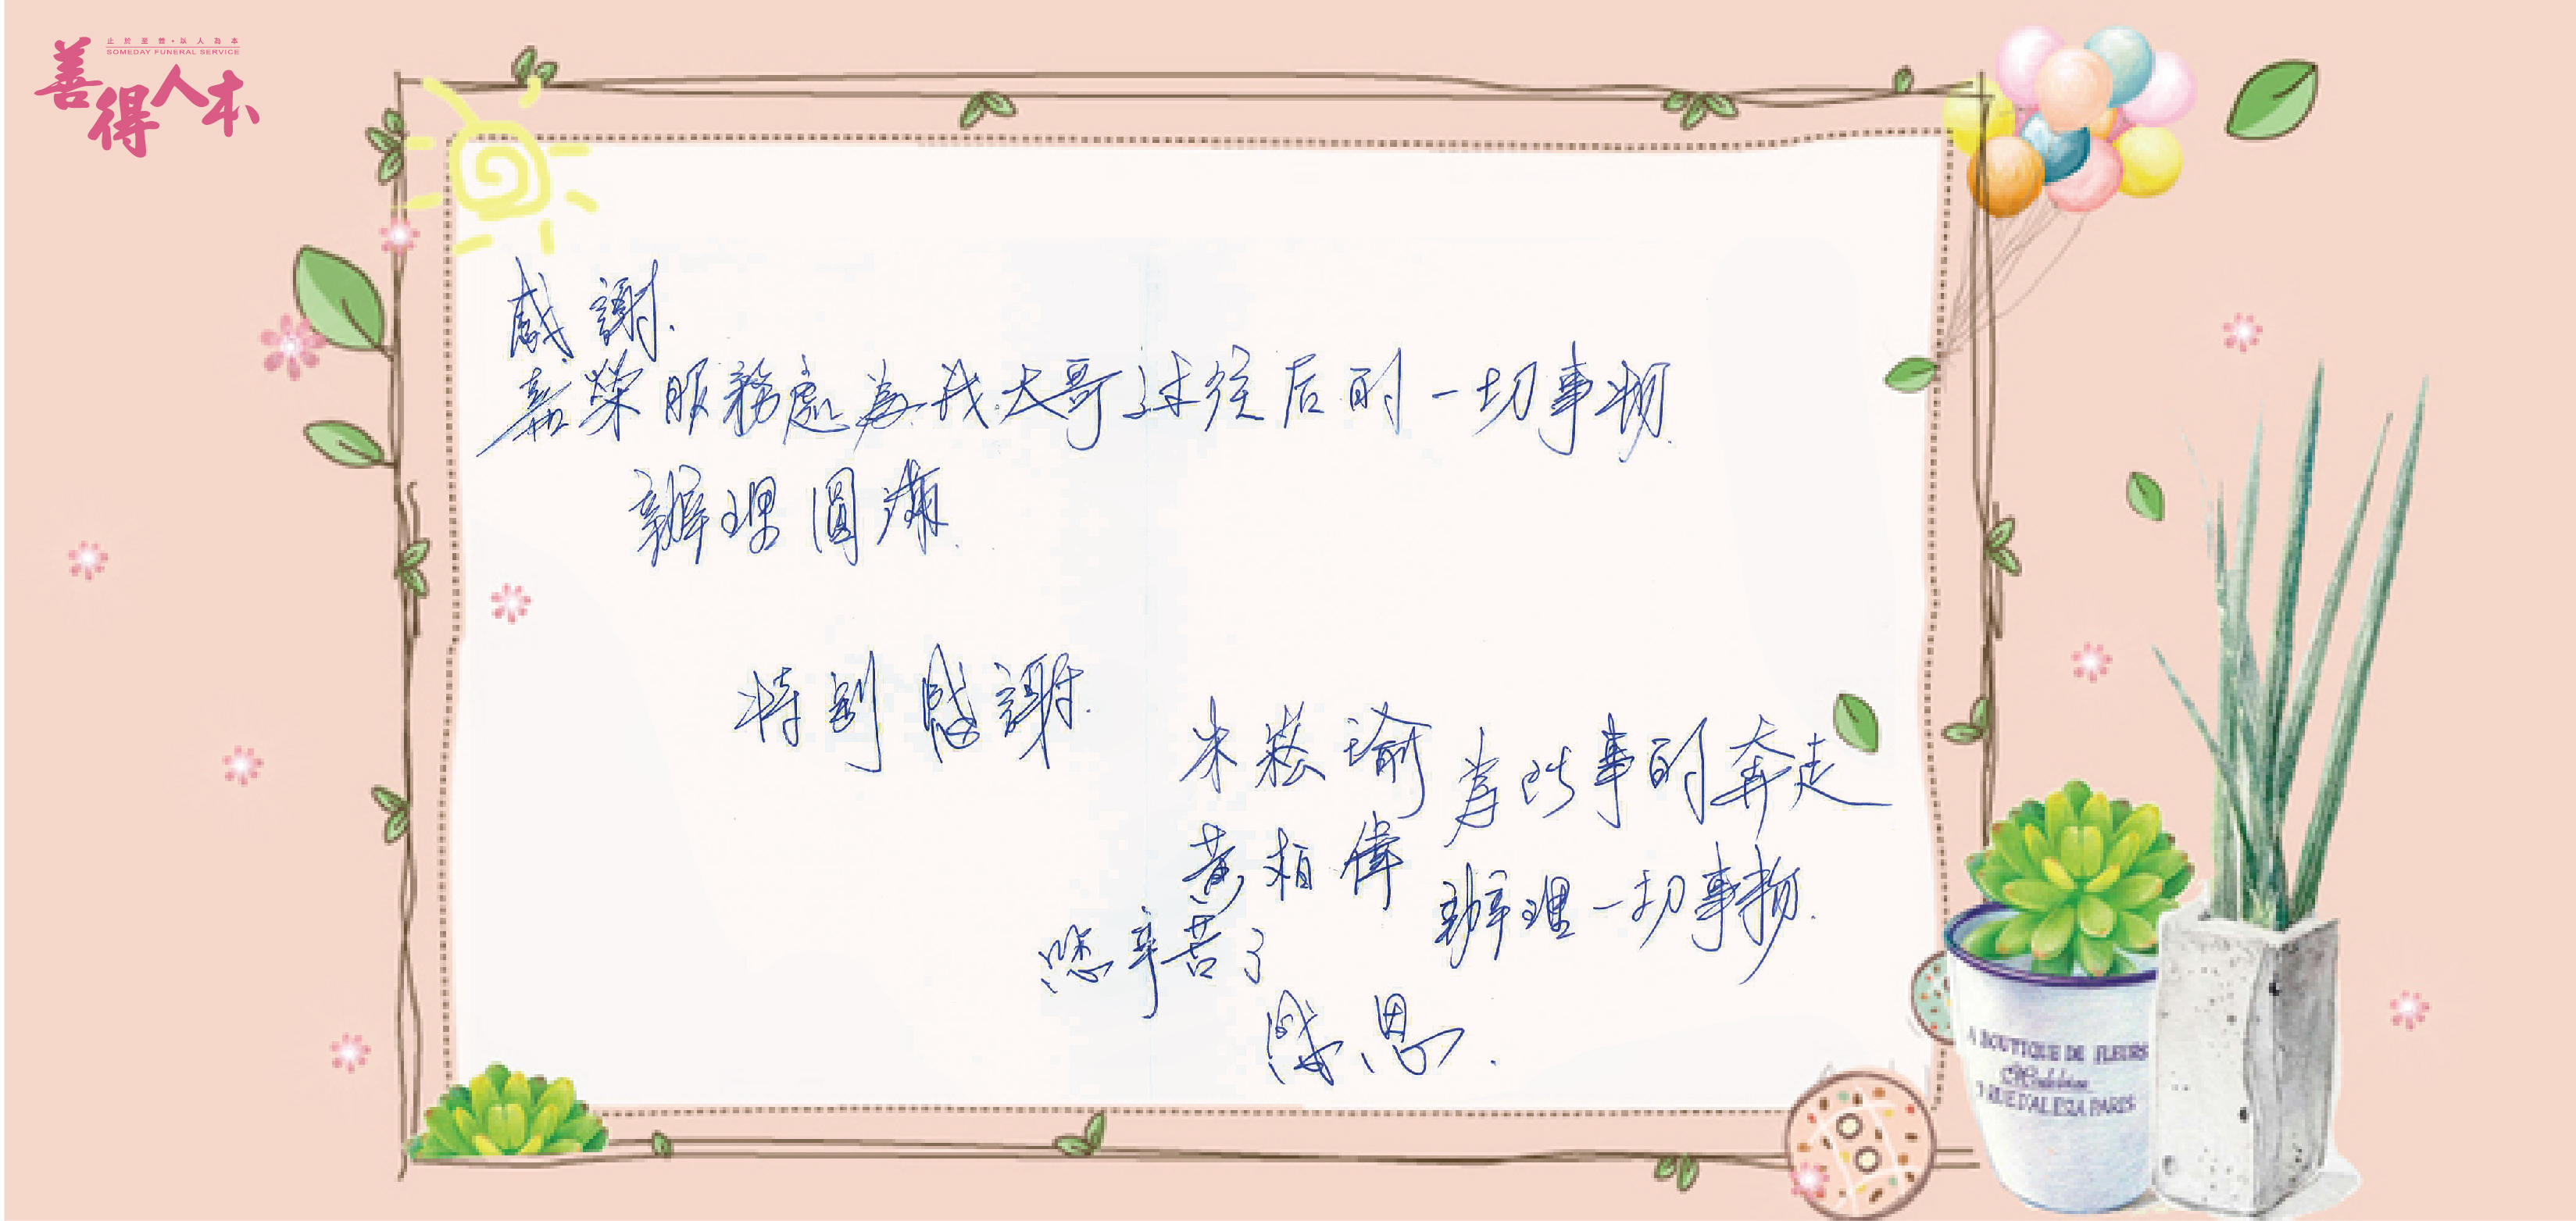 止於至善・以人為本
SOMEDAY FUNERAL SERVICE
善得人本
感謝.
嘉榮服務處為我大哥过往后的一切事物.
辦理圓滿.
特別感謝.
朱崧瑜 為此事的奔走
黃栢偉 辦理一切事物.
您辛苦了
感恩.
A BOUTIQUE DE FLEURS
RUE D'ALESIA PARIS